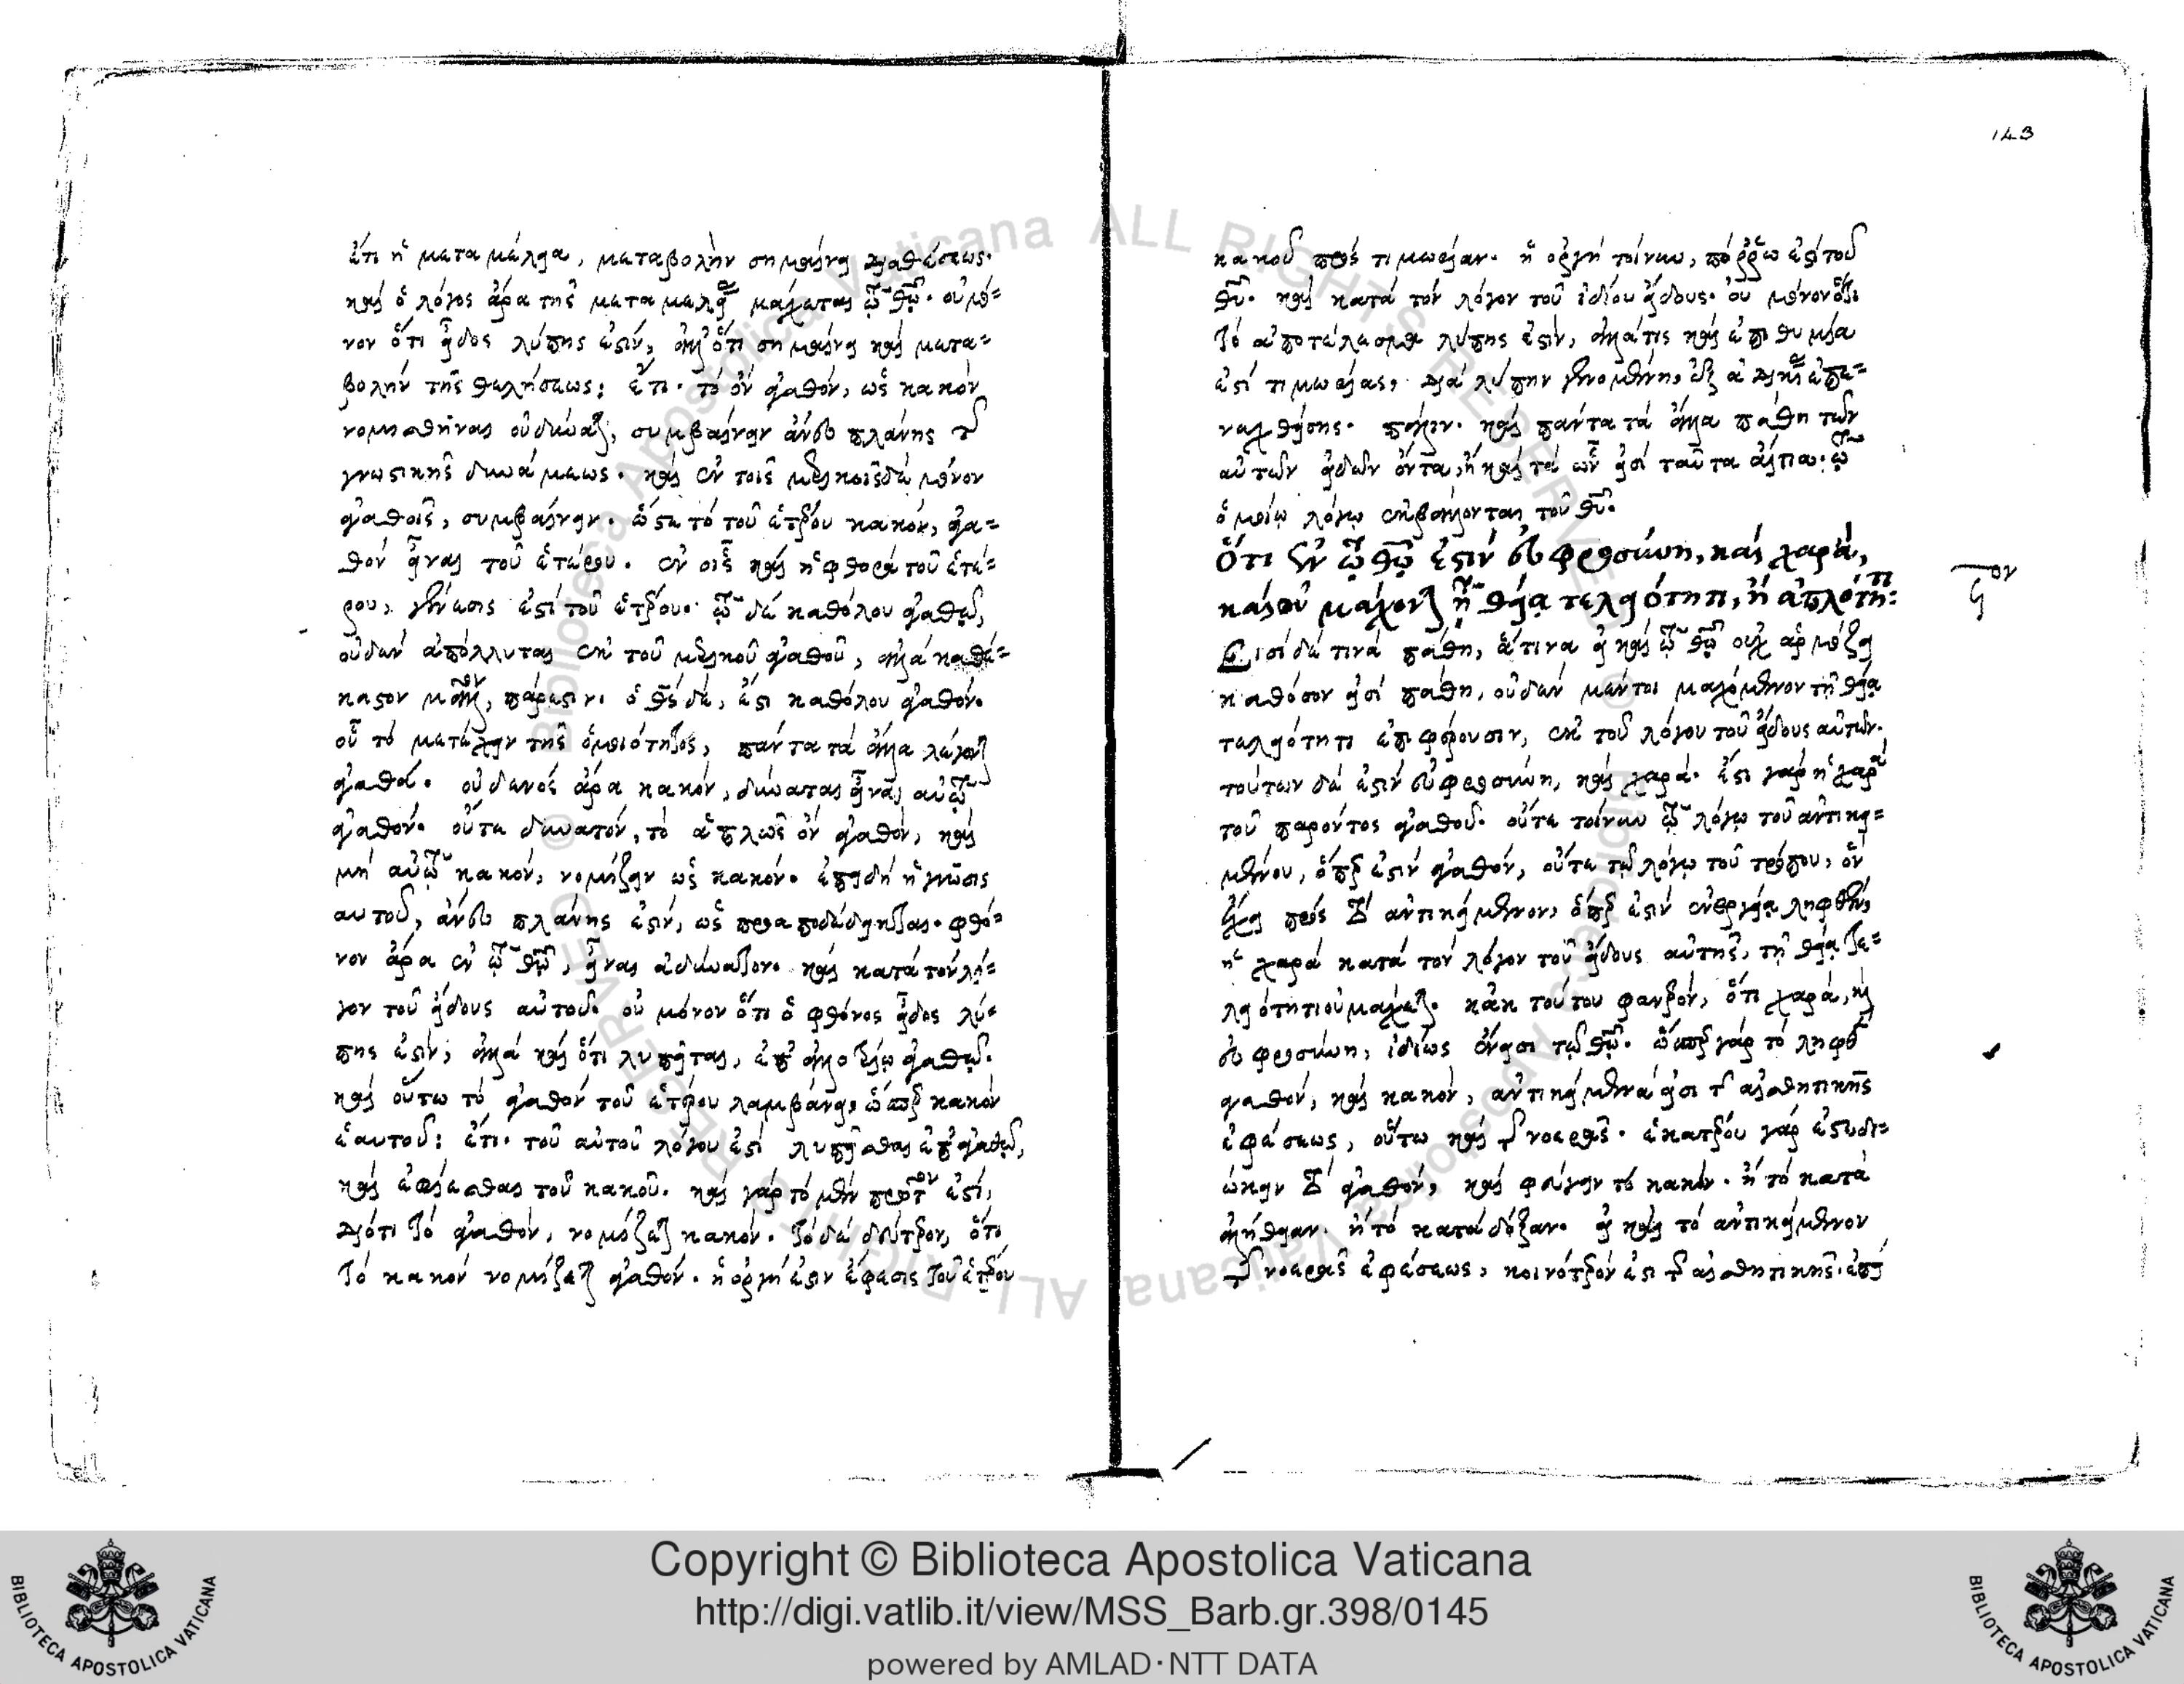 ἔτι ἡ μεταμέλεια, μεταβολὴν σημαίνει διαθέσεως.
καὶ ὁ λόγος ἄρα τῆς μεταμελείας μάχεται τῷ θῷ. οὐ μό=
νον ὅτι εἶδος λύπης ἐστίν, ἀλλ' ὅτι σημαίνει καὶ μετα=
βολὴν τῆς θελήσεως: ἔτι. τὸ ὂν ἀγαθόν, ὡς κακὸν
νομισθῆναι οὐ δύναται, συμβαίνειν ἄνευ πλάνης τῆς
γνωστικῆς δυνάμεως. καὶ ἐν τοῖς μερικοῖς δὲ μόνον
ἀγαθοῖς, συμβαίνειν. ὥστε τὸ τοῦ ἑτέρου κακόν, ἀγα=
θὸν εἶναι τοῦ ἑτέρου. ἐν οἷς καὶ ἡ φθορὰ τοῦ ἑτέ=
ρου, γένεσις ἐστὶ τοῦ ἑτέρου. τῷ δὲ καθόλου ἀγαθῷ,
οὐδὲν ἀπόλλυται ἐκ τοῦ μερικοῦ ἀγαθοῦ, ἀλλὰ καθέ=
καστον μᾶλλον, πάρεστιν. ὁ θς δὲ, ἐστι καθόλου ἀγαθόν.
οὗ τὸ μετέχειν τῆς ὁμοιότητος, πάντα τὰ ἄλλα λέγεται
ἀγαθά. οὐδενὸς ἄρα κακόν, δύναται εἶναι αὐτῷ
ἀγαθόν. οὔτε δυνατόν, τὸ ἁπλῶς ὂν ἀγαθόν, καὶ
μὴ αὐτῷ κακόν, νομίζειν ὡς κακόν. ἐπειδὴ ἡ γνῶσις
αυτοῦ, ἄνευ πλάνης ἐστίν, ὡς προαποδέδεικται. φθό=
νον ἄρα ἐν τῷ θῷ, εἶναι ἀδύνατον. καὶ κατὰ τὸν λό=
γον τοῦ εἴδους αὐτοῦ. οὐ μόνον ὅτι ὁ φθόνος εἶδος λύ=
πης ἐστίν, ἀλλὰ καὶ ὅτι λυπεῖται, ἐπ' ἀλλοτρίῳ ἀγαθῷ.
καὶ οὕτω τὸ ἀγαθὸν τοῦ ἑτέρου λαμβάνει, ὥσπερ κακὸν
ἑαυτοῦ: ἔτι. τοῦ αὐτοῦ λόγου ἐστὶ λυπεῖσθαι ἐπ' ἀγαθῷ,
καὶ ἐφίεσθαι τοῦ κακοῦ. καὶ γὰρ τὸ μὲν πρῶτον ἐστί,
διότι τὸ ἀγαθόν, νομίζεται κακόν. τὸ δὲ δεύτερον, ὅτι
τὸ κακὸν νομίζεται ἀγαθόν. ἡ ὀργή ἐστιν ἔφεσις τοῦ ἑτέρου
143
κακοῦ πρὸς τιμωρίαν. ἡ ὀργὴ τοίνυν, πόρρω ἐστὶ τοῦ
θῦ. καὶ κατὰ τὸν λόγον τοῦ ἰδίου εἴδους. οὐ μόνον ὅτι
τὸ ἀποτέλεσμα λύπης ἐστίν, ἀλλ' ἔτι καὶ ἐπιθυμία
ἐστὶ τιμωρίας, διὰ λύπην γινομένη, ἐξ ἀδικίας ἐπε=
νεχθείσης. πάλιν. καὶ πάντα τὰ ἄλλα πάθη τῶν
αὐτῶν εἰδῶν ὄντα, ἢ καὶ τὰ ὧν εἰσὶ ταῦτα αἴτια. τῷ
ὁμοίῳ λόγῳ ἐκβάλλονται τοῦ θῦ.
Ὅτι ἐν τῷ θῷ ἐστὶν εὐφροσύνη, καὶ χαρά,
καὶ οὐ μάχονται τῇ θείᾳ τελειότητι, ἢ ἁπλότητι:
Εἰσὶ δέ τινα πάθη, ἅτινα εἰ καὶ τῷ θῷ οὐχ ἁρμόζει
καθόσον εἰσὶ πάθη, οὐδὲν μέντοι μαχόμενον τῇ θείᾳ
τελειότητι ἐπιφέρουσιν, ἐκ τοῦ λόγου τοῦ εἴδους αὐτῶν.
τούτων δέ ἐστιν εὐφροσύνη, καὶ χαρά. ἔστι γὰρ ἡ χαρὰ
τοῦ παρόντος ἀγαθοῦ. οὔτε τοίνυν τῷ λόγῳ τοῦ ἀντικει=
μένου, ὅπερ ἐστὶν ἀγαθόν, οὔτε τῷ λόγῳ τοῦ τρόπου, ὃν
ἔχει πρὸς τὸ ἀντικείμενον, ὅπερ ἐστὶν ἐνεργείᾳ ληφθέν,
ἡ χαρὰ κατὰ τὸν λόγον τοῦ εἴδους αὐτῆς, τῇ θείᾳ τε=
λειότητι οὐ μάχεται. κἀκ τούτου φανερόν, ὅτι χαρά, καὶ
εὐφροσύνη, ἰδίως ἔνεισι τῷ θῷ. ὥσπερ γὰρ τὸ ληφθὲν
ἀγαθόν, καὶ κακόν, ἀντικείμενά εἰσι τῆς αἰσθητικῆς
ἐφέσεως, οὕτω καὶ τῆς νοερᾶς. ἑκατέρου γάρ ἐστι δι=
ώκειν τὸ ἀγαθόν, καὶ φεύγειν τὸ κακόν. ἢ τὸ κατὰ
ἀλήθειαν. ἢ τὸ κατὰ δόξαν. εἰ καὶ τὸ ἀντικείμενον
τῆς νοερᾶς ἐφέσεως, κοινότερόν ἐστι τῆς αἰσθητικῆς. ἐπεὶ
Copyright © Biblioteca Apostolica Vaticana
http://digi.vatlib.it/view/MSS_Barb.gr.398/0145
powered by AMLAD·NTT DATA
BIBLIOTECA APOSTOLICA VATICANA
BIBLIOTECA APOSTOLICA VATICANA